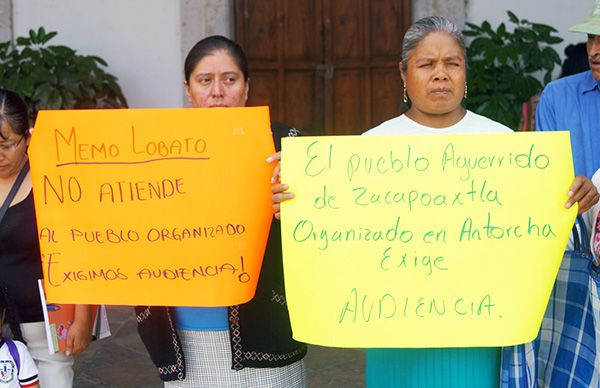 MEMO LOBATO
NO ATIENDE
AL PUEBLO ORGANIZADO
EXIGIMOS AUDIENCIA!
El pueblo Aguerrido
de Zacapoaxtla
Organizado en Antorcha
Exige
AUDIENCIA.